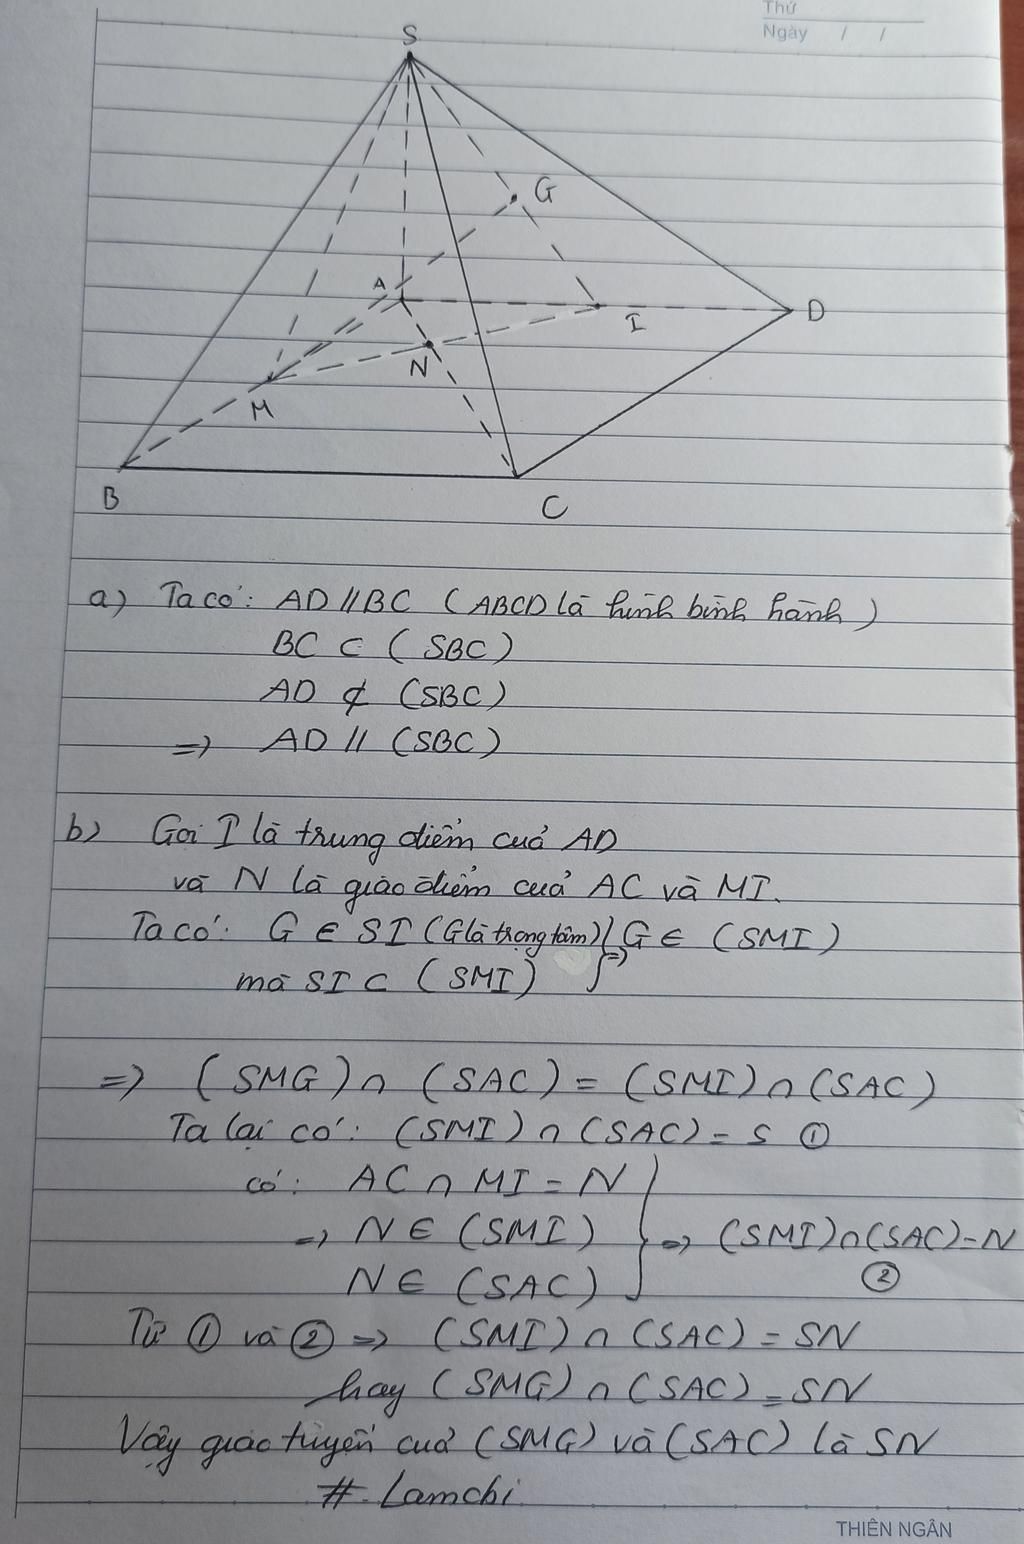 Thứ
Ngày / /
S
G
A
I
D
N
M
B
C
a) Ta có: AD // BC (ABCD là hình bình hành)
BC ⊂ (SBC)
AD ⊄ (SBC)
=> AD // (SBC)
b) Gọi I là trung điểm của AD
và N là giao điểm của AC và MI.
Ta có: G ∈ SI (G là trọng tâm) } => G ∈ (SMI)
mà SI ⊂ (SMI)
=> (SMG) ∩ (SAC) = (SMI) ∩ (SAC)
Ta lại có: (SMI) ∩ (SAC) = S ①
có: AC ∩ MI = N
=> N ∈ (SMI) } => (SMI) ∩ (SAC) = N
N ∈ (SAC) ②
Từ ① và ② => (SMI) ∩ (SAC) = SN
hay (SMG) ∩ (SAC) = SN
Vậy giao tuyến của (SMG) và (SAC) là SN
#. Lamchi
THIÊN NGÂN